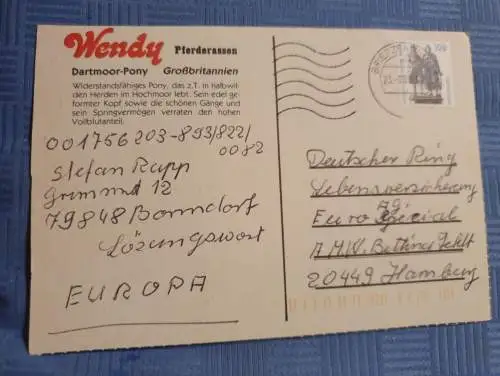 Wendy Pferderassen
Dartmoor-Pony Großbritannien
Widerstandsfähiges Pony, das z.T. in halbwil-
den Herden im Hochmoor lebt. Sein edel ge-
formter Kopf sowie die schönen Gänge und
sein Springvermögen verraten den hohen
Vollblutanteil.
001756203-893/822/
0082
Stefan Rapp
79848 Bonndorf
Lösungswort
EUROPA
Deutscher Ring
Lebensversicherung
AG
Euro Spezial
Bettina
20449 Hamburg